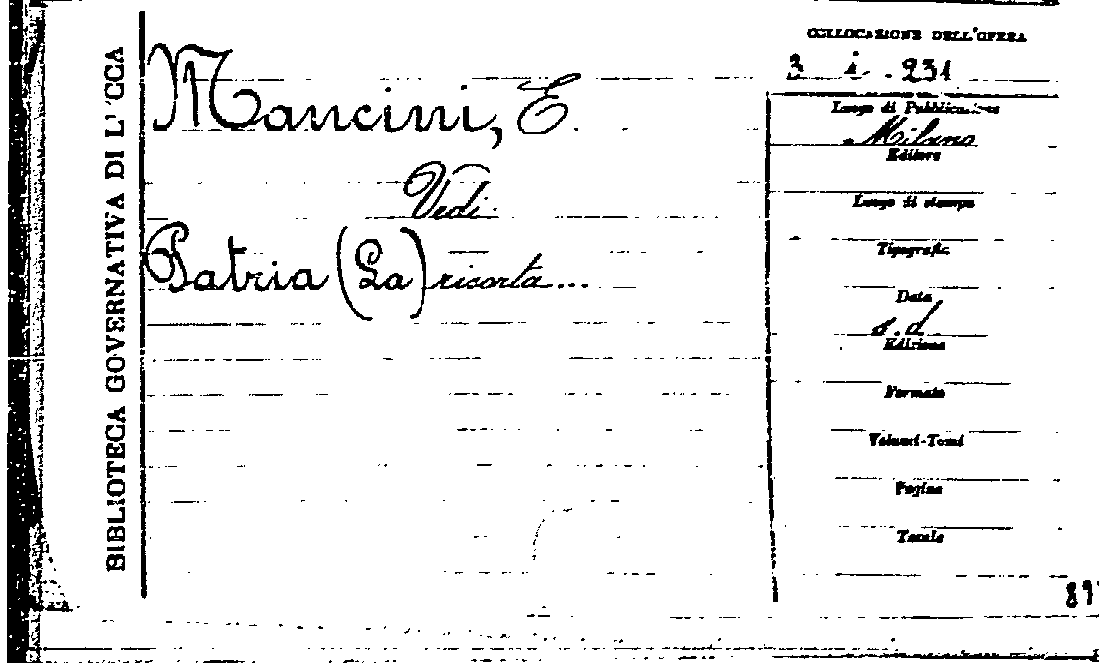 BIBLIOTECA GOVERNATIVA DI LUCCA
Mancini, E.
Vedi
Patria (La) risorta...
COLLOCAZIONE DELL'OPERA
3 i. 231
Luogo di Pubblicazione
Milano
Editore
Luogo di stampa
Tipografo
Data
s.d.
Edizione
Formato
Volumi-Tomi
Pagine
Tavole